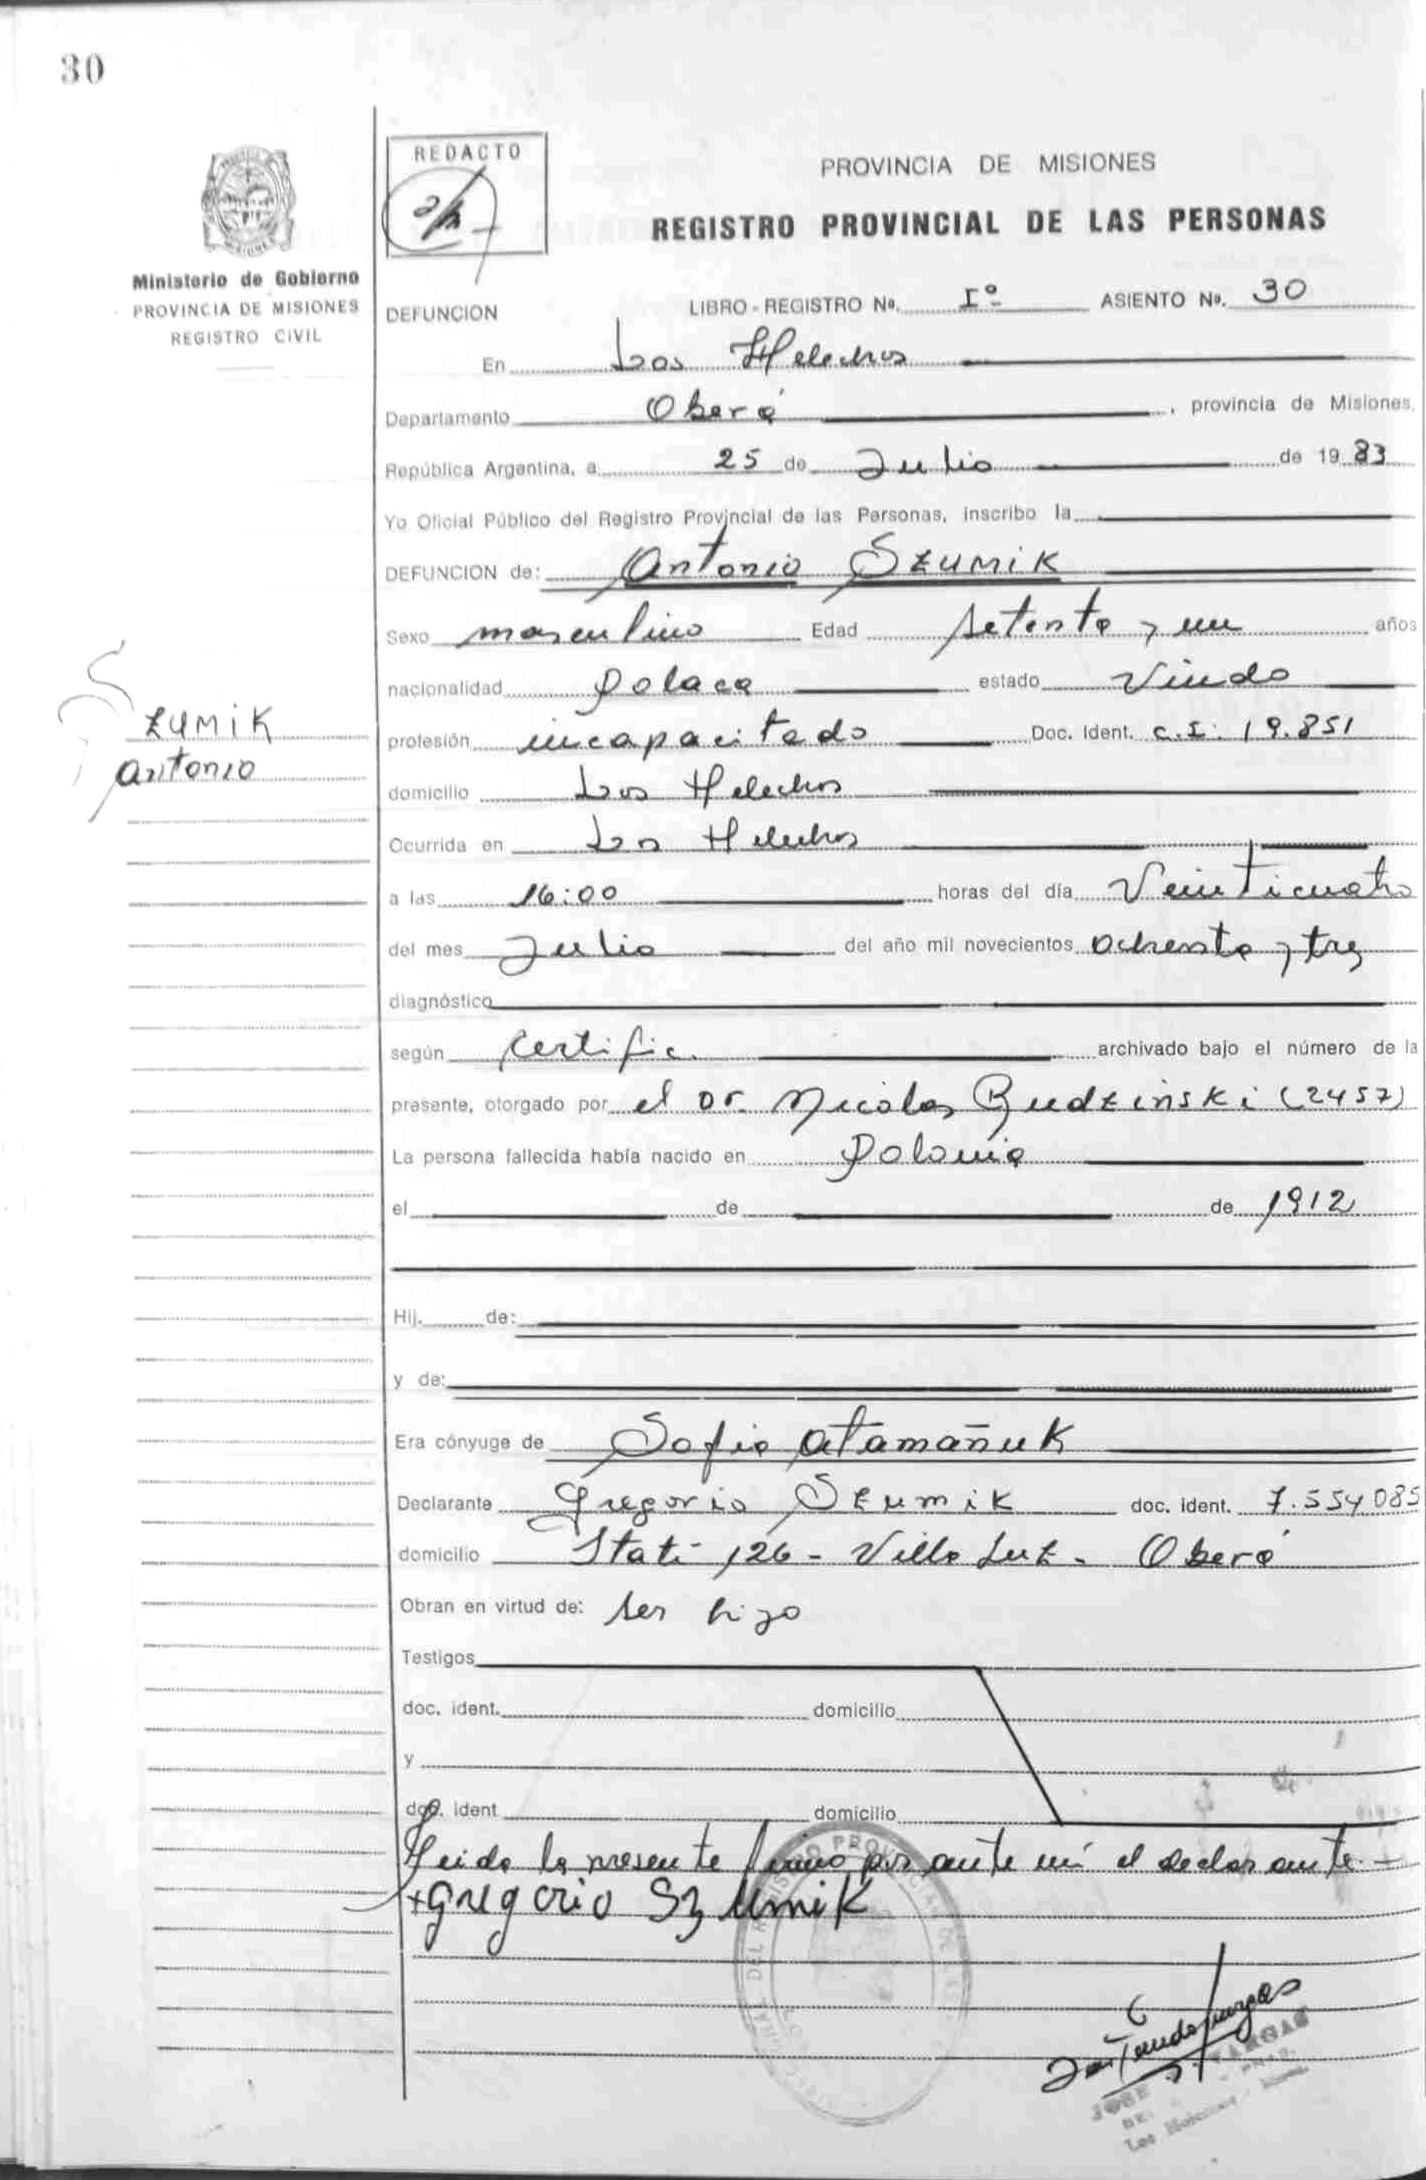 30
REDACTO
PROVINCIA DE MISIONES
REGISTRO PROVINCIAL DE LAS PERSONAS
Ministerio de Gobierno
PROVINCIA DE MISIONES
REGISTRO CIVIL
DEFUNCION LIBRO - REGISTRO Nº. Iº ASIENTO Nº. 30
En Los Helechos
Departamento Oberá, provincia de Misiones,
República Argentina, a 25 de Julio de 1983
Yo Oficial Público del Registro Provincial de las Personas, inscribo la
DEFUNCION de: Antonio SZUMIK
Sexo masculino Edad setenta y un años
nacionalidad polaca estado Viudo
SZUMIK
Antonio
profesión incapacitado Doc. Ident. C.I. 19.851
domicilio Los Helechos
Ocurrida en Los Helechos
a las 16:00 horas del día Veinticuatro
del mes Julio del año mil novecientos ochenta y tres
diagnóstico
según certific. archivado bajo el número de la
presente, otorgado por el Dr. Nicolas Budzinski (2457)
La persona fallecida había nacido en Polonia
el de de 1912
Hij. de:
y de:
Era cónyuge de Sofia Atamañuk
Declarante Gregorio SZUMIK doc. ident. 7.554085
domicilio Stati 126 - Villa Luz - Oberá
Obran en virtud de: ser hijo
Testigos
doc. ident. domicilio
y
doc. ident domicilio
Leida la presente firma por ante mí el declarante -
+Gregorio SzUmiK
JOSE VARGAS
Los Helechos